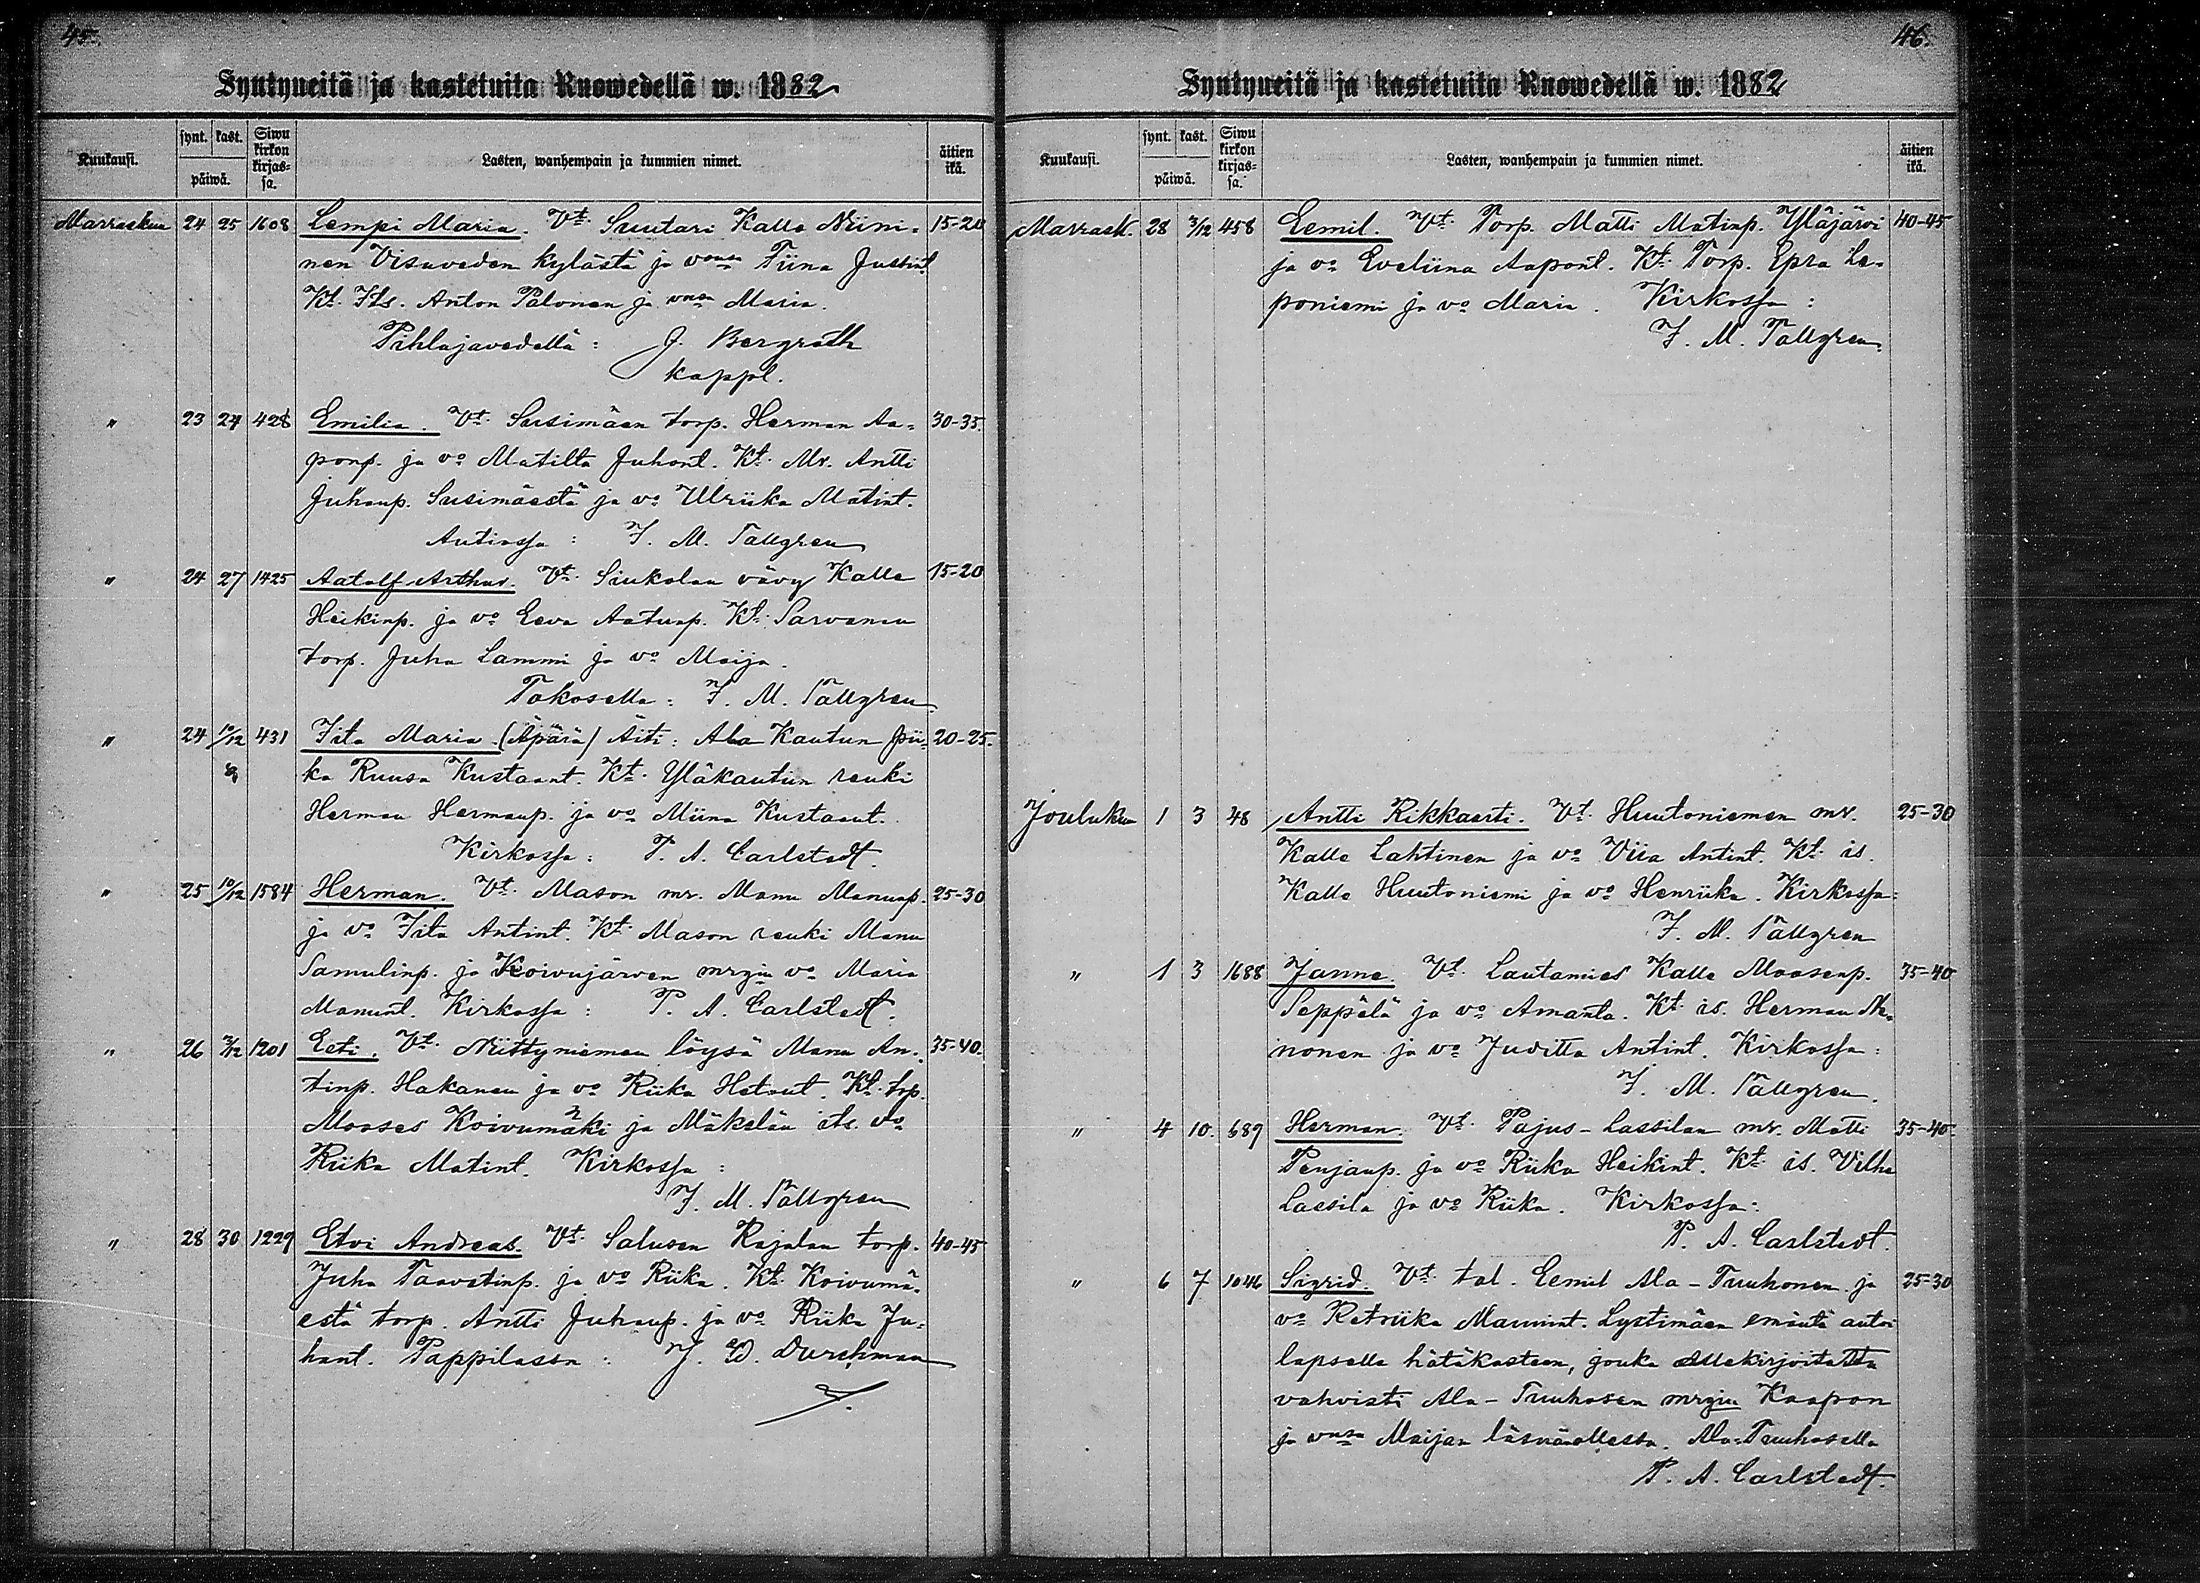 45.
Syntyneitä ja kastetuita Ruowedellä w. 1882
Kuukausi.
synt. kast.
päiwä.
Siwu kirkon kirjas-sa.
Lasten, wanhempain ja kummien nimet.
äitien ikä.
Marraskuu 24 25 1608 Lempi Maria. Vt. Suutari Kalle Niini- 15-20
nen Visuveden kylästä ja vmsa Tiina Justint
Kt. Its. Anton Palonen ja vmsa Maria.
Pihlajavedellä: J. Bergroth
kappl.
" 23 24 428 Emilia. Vt. Susimäen torp. Herman Aa- 30-35.
ponp. ja vo Matilta Juhont. Kt. Mr. Antti
Juhanp. Susimäestä ja vo Ulriika Matint.
Autiossa: I. M. Tallgren
" 24 27 1425 Aatolf Arthur. Vt. Siukolan vävy Kalle 15-20
Heikinp. ja vo Eeva Aatunp. Kt. Sarvanen
torp. Juha Lammi ja vo Maija.
Tokosella: I. M. Tallgren
" 24 10/12 431 Iita Maria. (Äpärä) Äiti: Ala Kautun pii- 20-25.
ka Ruusa Kustaant. Kt. Yläkautun renki
Herman Hermanp. ja vo Miina Kustaant.
Kirkossa: P. A. Carlstedt.
" 25 10/12 1584 Herman. Vt. Mason mr. Manu Manunp. 25-30
ja vo Iita Antint. Kt. Mason renki Manu
Samulinp. ja Koivujärven mrgin vo Maria
Manunt. Kirkossa: P. A. Carlstedt.
" 26 3/12 1201 Eeti. Vt. Niittyniemen löysä Manu An- 35-40.
tinp. Hakanen ja vo Riika Hetvut. Kt. trp.
Mooses Koivumäki ja Mäkelän its. vo
Riika Matint. Kirkossa:
I. M. Tallgren
" 28 30 1229 Etvi Andreas. Vt. Salusen Rajalan torp. 40-45
Juha Taavetinp. ja vo Riika. Kt. Koivumä-
estä torp. Antti Juhanp. ja vo Riika Ju-
hant. Pappilassa: J. W. Durchman
46.
Syntyneitä ja kastetuita Ruowedellä w. 1882
Kuukausi.
synt. kast.
päiwä.
Siwu kirkon kirjas-sa.
Lasten, wanhempain ja kummien nimet.
äitien ikä.
Marrask. 28 3/12 458 Eemil. Vt. Torp. Matti Matinp. Yläjärvi 40-45
ja vo Eveliina Aapont. Kt. Torp. Epra Le-
poniemi ja vo Maria. Kirkossa:
I. M. Tallgren.
Joulukuu 1 3 48 Antti Rikkaarti. Vt. Huutoniemen mr. 25-30
Kalle Lahtinen ja vo Viia Antint. Kt. is.
Kalle Huutoniemi ja vo Henriika. Kirkossa:
I. M. Tallgren
" 1 3 1688 Janne. Vt. Lautamies Kalle Moosenp. 35-40
Seppälä ja vo Amanta. Kt. is. Herman Me-
nonen ja vo Juditta Antint. Kirkossa:
I. M. Tallgren.
" 4 10. 689 Herman. Vt. Pajus-Lassilan mr. Matti 35-40.
Penjanp. ja vo Riika Heikint. Kt. is. Vilho
Lassila ja vo Riika. Kirkossa:
P. A. Carlstedt.
" 6 7 1046 Sigrid. Vt. tal. Eemil Ala-Tuuhonen ja 25-30
vo Retriika Manunt. Lystimäen emäntä antoi
lapselle hätäkasteen, jonka allekirjoitettu
vahvisti Ala-Tuuhosen mrgin Kaapon
ja vmsa Maijan läsnäollessa. Ala-Tuuhosella
P. A. Carlstedt.